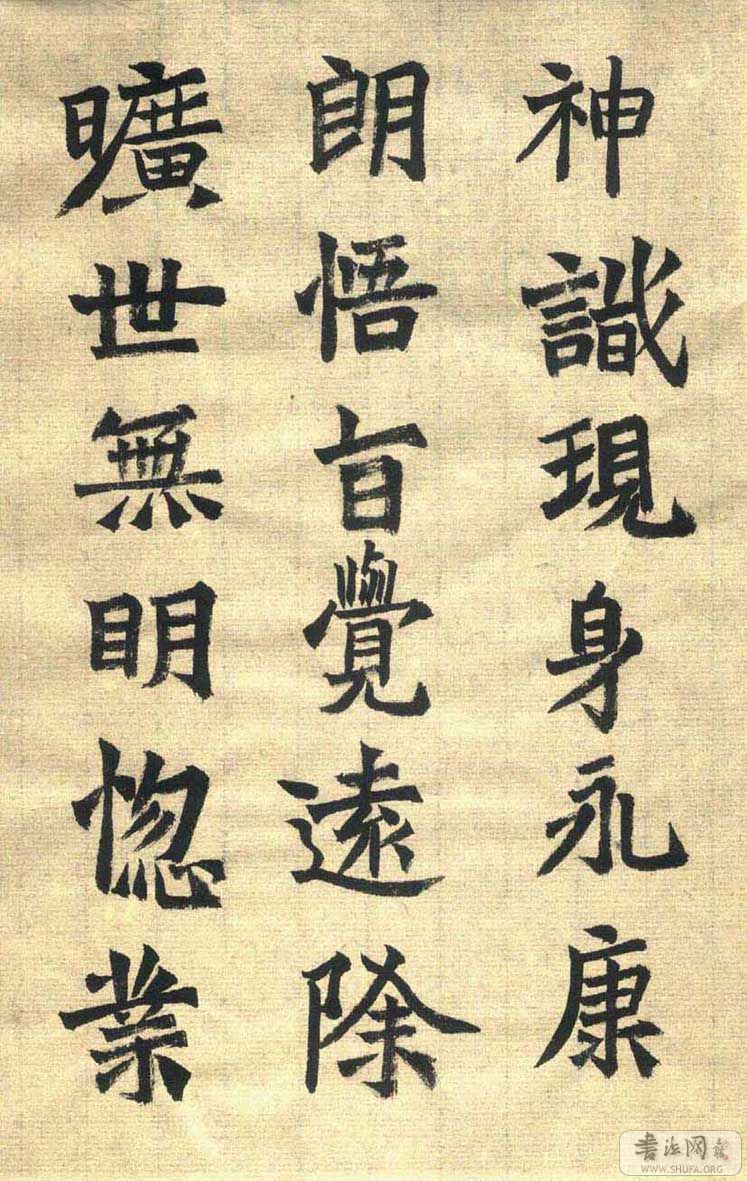 神識現身永康
朗悟㫖覺遠除
曠世無明惚業
书法网
WWW.SHUFA.ORG